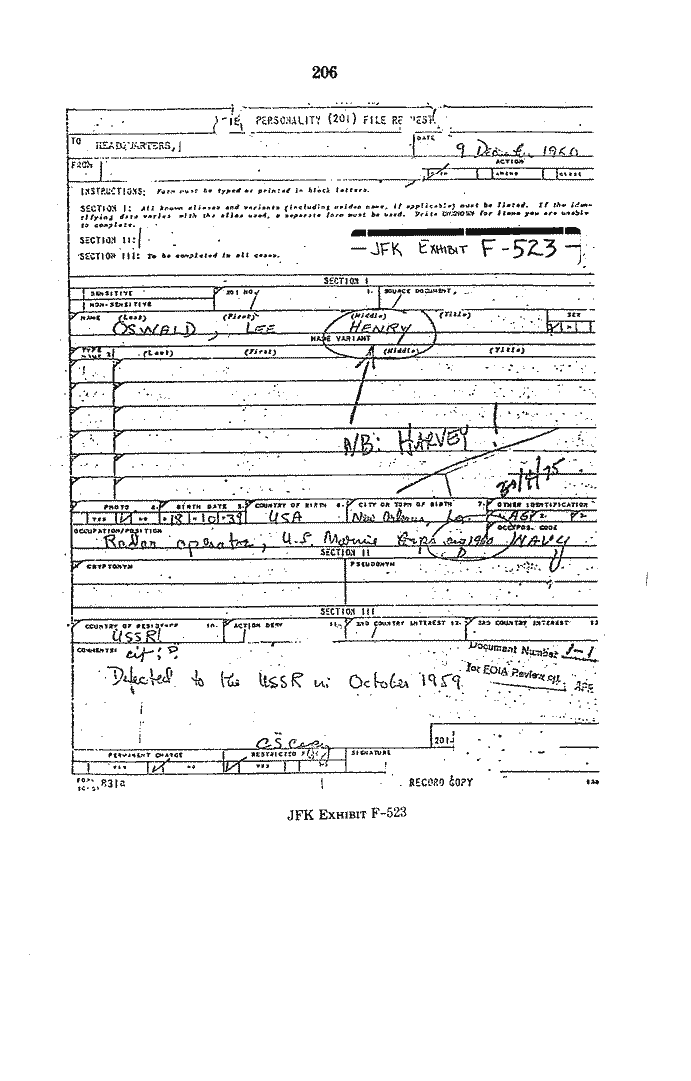 206
PERSONALITY (201) FILE REQUEST
TO HEADQUARTERS, DATE
9 December 1960
FROM ACTION
OPEN AMEND CLOSE
INSTRUCTIONS: Form must be typed or printed in block letters.
SECTION I: All known aliases and variants (including maiden name, if applicable) must be listed. If the iden-
tifying data varies with the alias used, a separate form must be used. Write UNKNOWN for items you are unable
to complete.
SECTION II:
JFK EXHIBIT F-523
SECTION III: To be completed in all cases.
SECTION I
SENSITIVE 201 NO. 1. SOURCE DOCUMENT
NON-SENSITIVE
NAME (Last) (First) (Middle) (Title) SEX
OSWALD, LEE HENRY
NAME VARIANT
TYPE NAME 2. (Last) (First) (Middle) (Title)
NB: HARVEY
PHOTO 4. BIRTH DATE 5. COUNTRY OF BIRTH 6. CITY OR TOWN OF BIRTH 7. OTHER IDENTIFICATION
YES NO 18 10 39 USA New Orleans, La. AG
OCCUPATION/POSITION OCC/POS. CODE
Radar operator, U.S. Marine Corps NAVY
SECTION II
CRYPTONYM PSEUDONYM
SECTION III
COUNTRY OF RESIDENCE 10. ACTION DESK 11. 2ND COUNTRY INTEREST 12. 3RD COUNTRY INTEREST
USSR
COMMENTS: Document Number 1-1
for FOIA Review on
Defected to the USSR in October 1959
201-
PERMANENT CHARGE RESTRICTED FILE SIGNATURE
YES NO YES
FORM 831a RECORD COPY
JFK EXHIBIT F-523